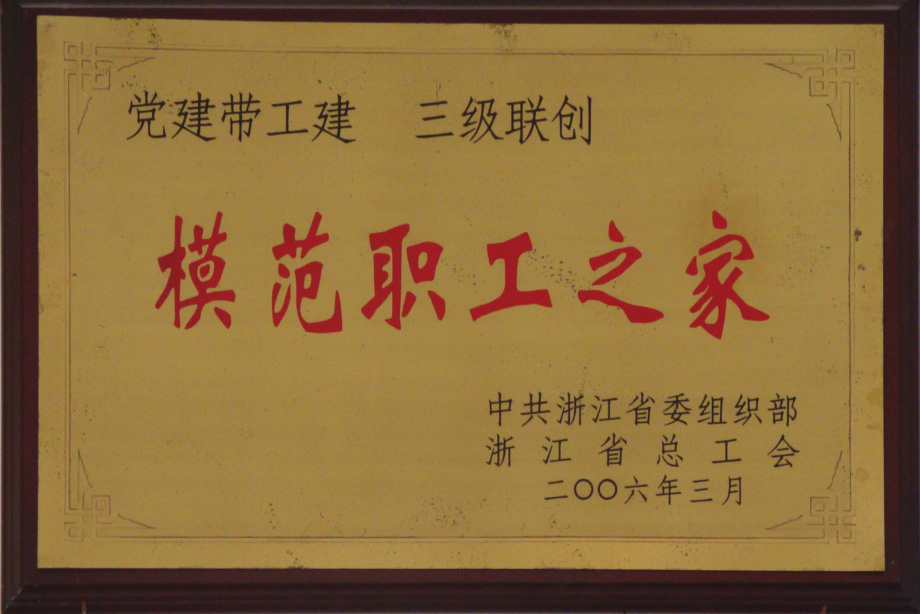 党建带工建 三级联创
模范职工之家
中共浙江省委组织部
浙江省总工会
二〇〇六年三月